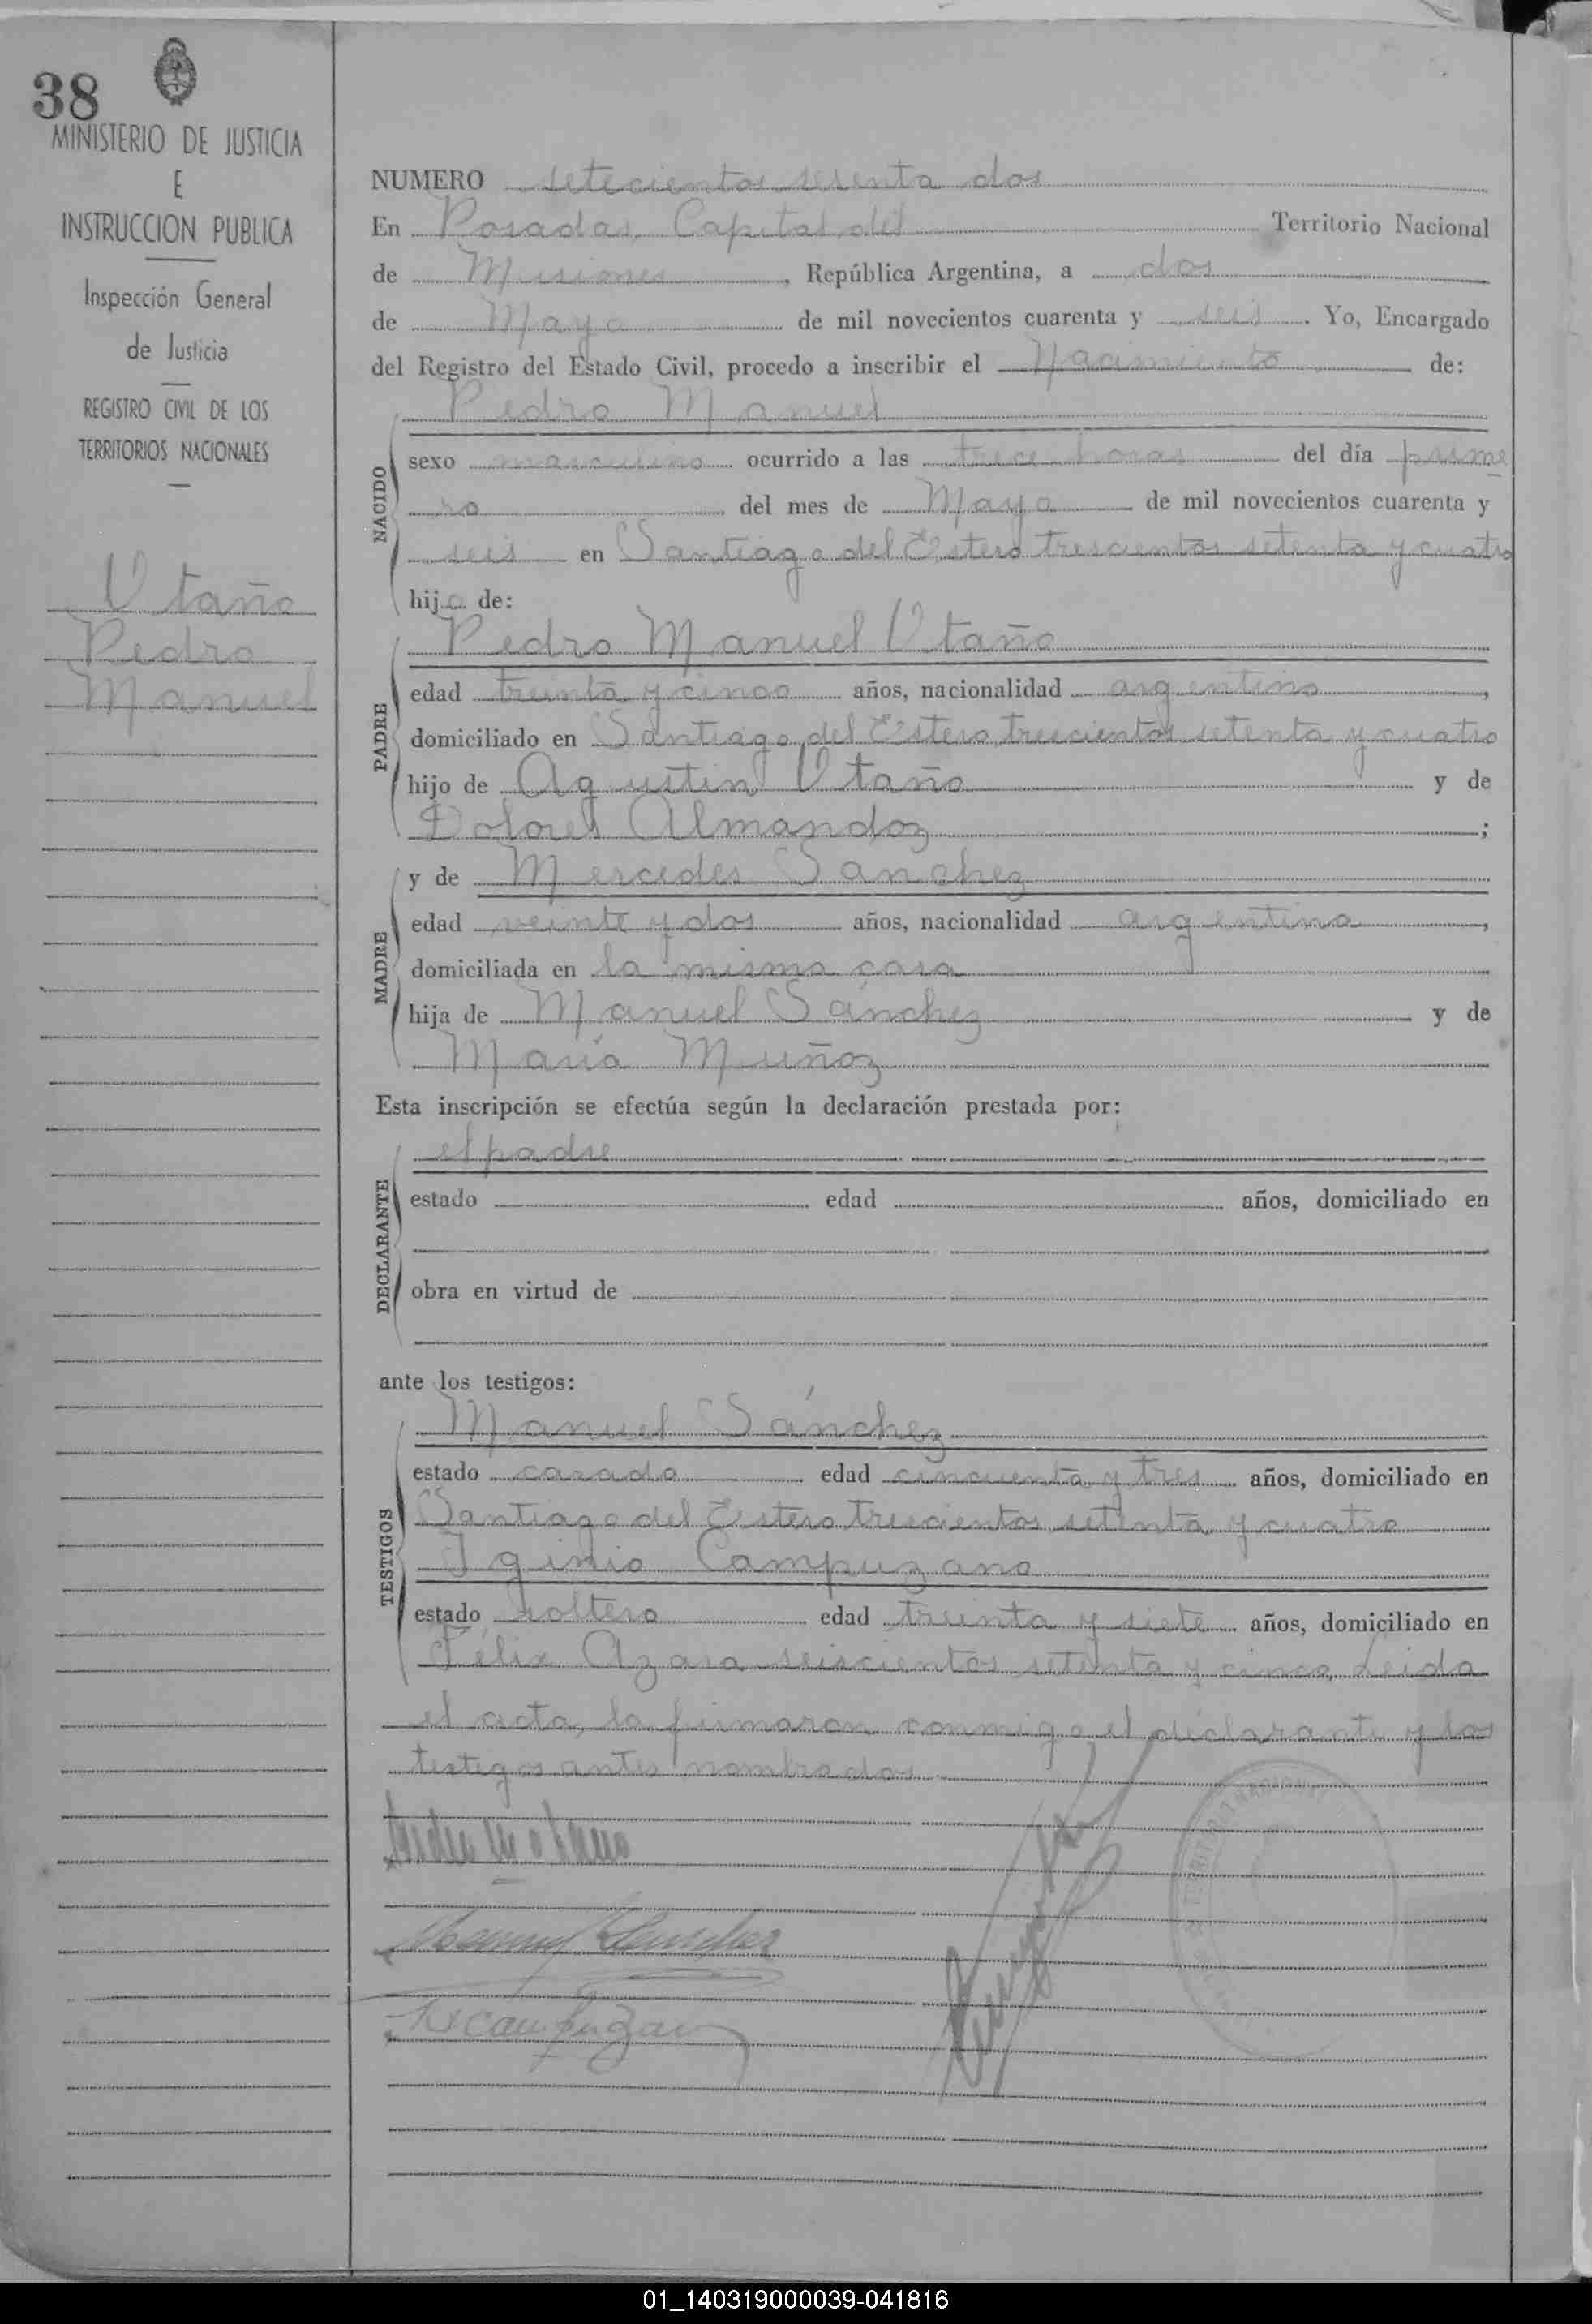 38
MINISTERIO DE JUSTICIA
E
INSTRUCCION PUBLICA
Inspección General
de Justicia
REGISTRO CIVIL DE LOS
TERRITORIOS NACIONALES
Utaño
Pedro
Manuel
NUMERO setecientos sesenta dos
En Posadas, Capital del Territorio Nacional
de Misiones, República Argentina, a dos
de Mayo de mil novecientos cuarenta y seis. Yo, Encargado
del Registro del Estado Civil, procedo a inscribir el Nacimiento de:
Pedro Manuel
NACIDO
sexo masculino ocurrido a las trece horas del día prime
ro del mes de Mayo de mil novecientos cuarenta y
seis en Santiago del Estero trescientos setenta y cuatro
hijo de:
Pedro Manuel Utaño
PADRE
edad treinta y cinco años, nacionalidad argentino,
domiciliado en Santiago del Estero trescientos setenta y cuatro
hijo de Agustin Utaño y de
Dolores Almandoz;
y de Mercedes Sanchez
MADRE
edad veinte y dos años, nacionalidad argentina,
domiciliada en la misma casa
hija de Manuel Sánchez y de
María Muñoz
Esta inscripción se efectúa según la declaración prestada por:
el padre
DECLARANTE
estado edad años, domiciliado en
obra en virtud de
ante los testigos:
Manuel Sánchez
TESTIGOS
estado casado edad cincuenta y tres años, domiciliado en
Santiago del Estero trescientos setenta y cuatro
Iginio Campuzano
estado soltero edad treinta y siete años, domiciliado en
Félix Azara seiscientos setenta y cinco, Leida
el acta, la firmaron conmigo el declarante y los
testigos antes nombrados.
Manuel Sanchez
01_140319000039-041816